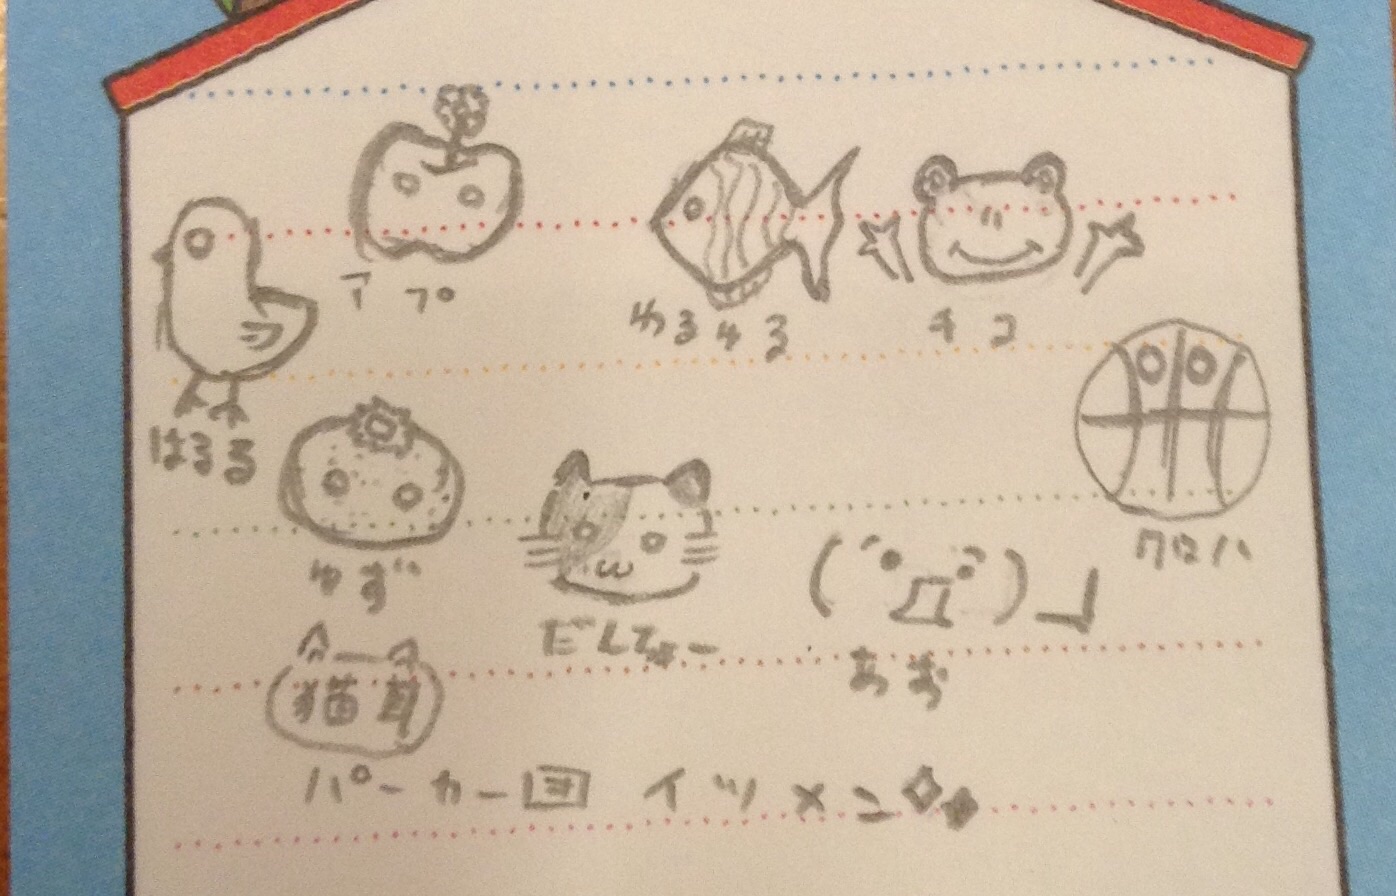 アプ
ゆるゆる
キコ
はるる
クロハ
ゆず
(´•д•`)┘
あお
猫耳
パーカー団 イツメン